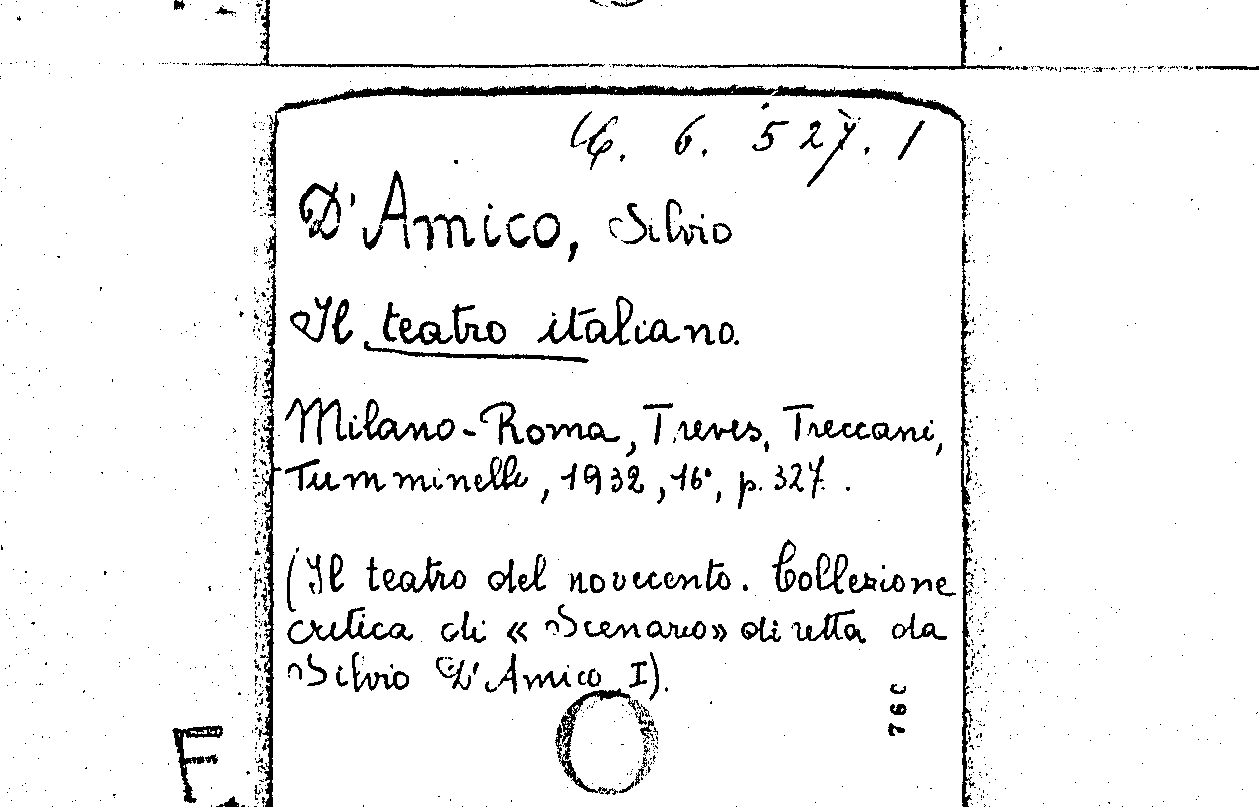 6. 527. 1
D'Amico, Silvio
Il teatro italiano.
Milano-Roma, Treves, Treccani,
Tumminelli, 1932, 16°, p. 327.
(Il teatro del novecento. Collezione
critica di « Scenario» diretta da
Silvio D'Amico I).
76C
F